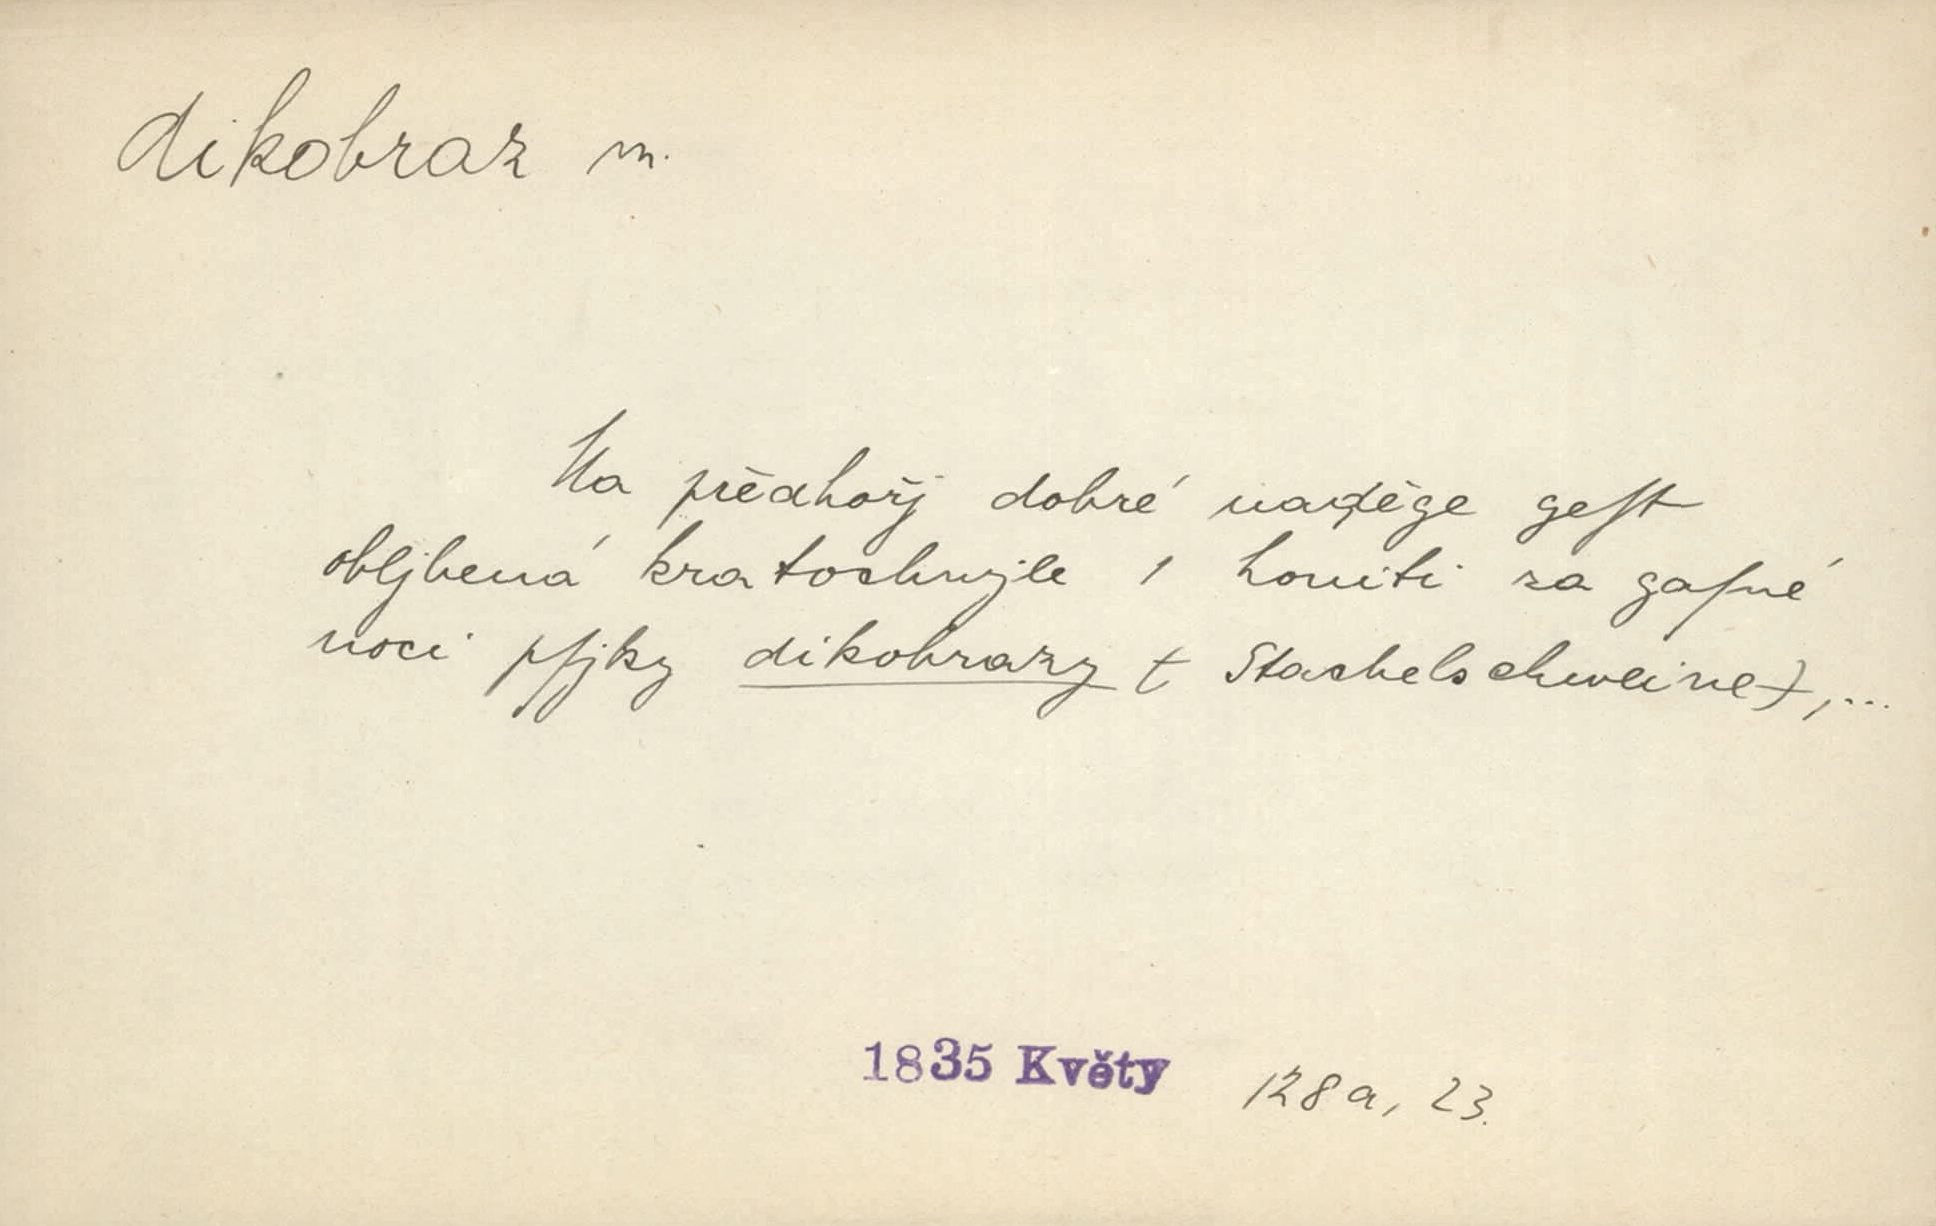 dikobraz m.
Na předhořj dobré naděge geſt
obljbená kratochwjle, honiti za gaſné
noci pſjky dikobrazy (Stachelschweine), ...
1835 Květy 128a, 23.